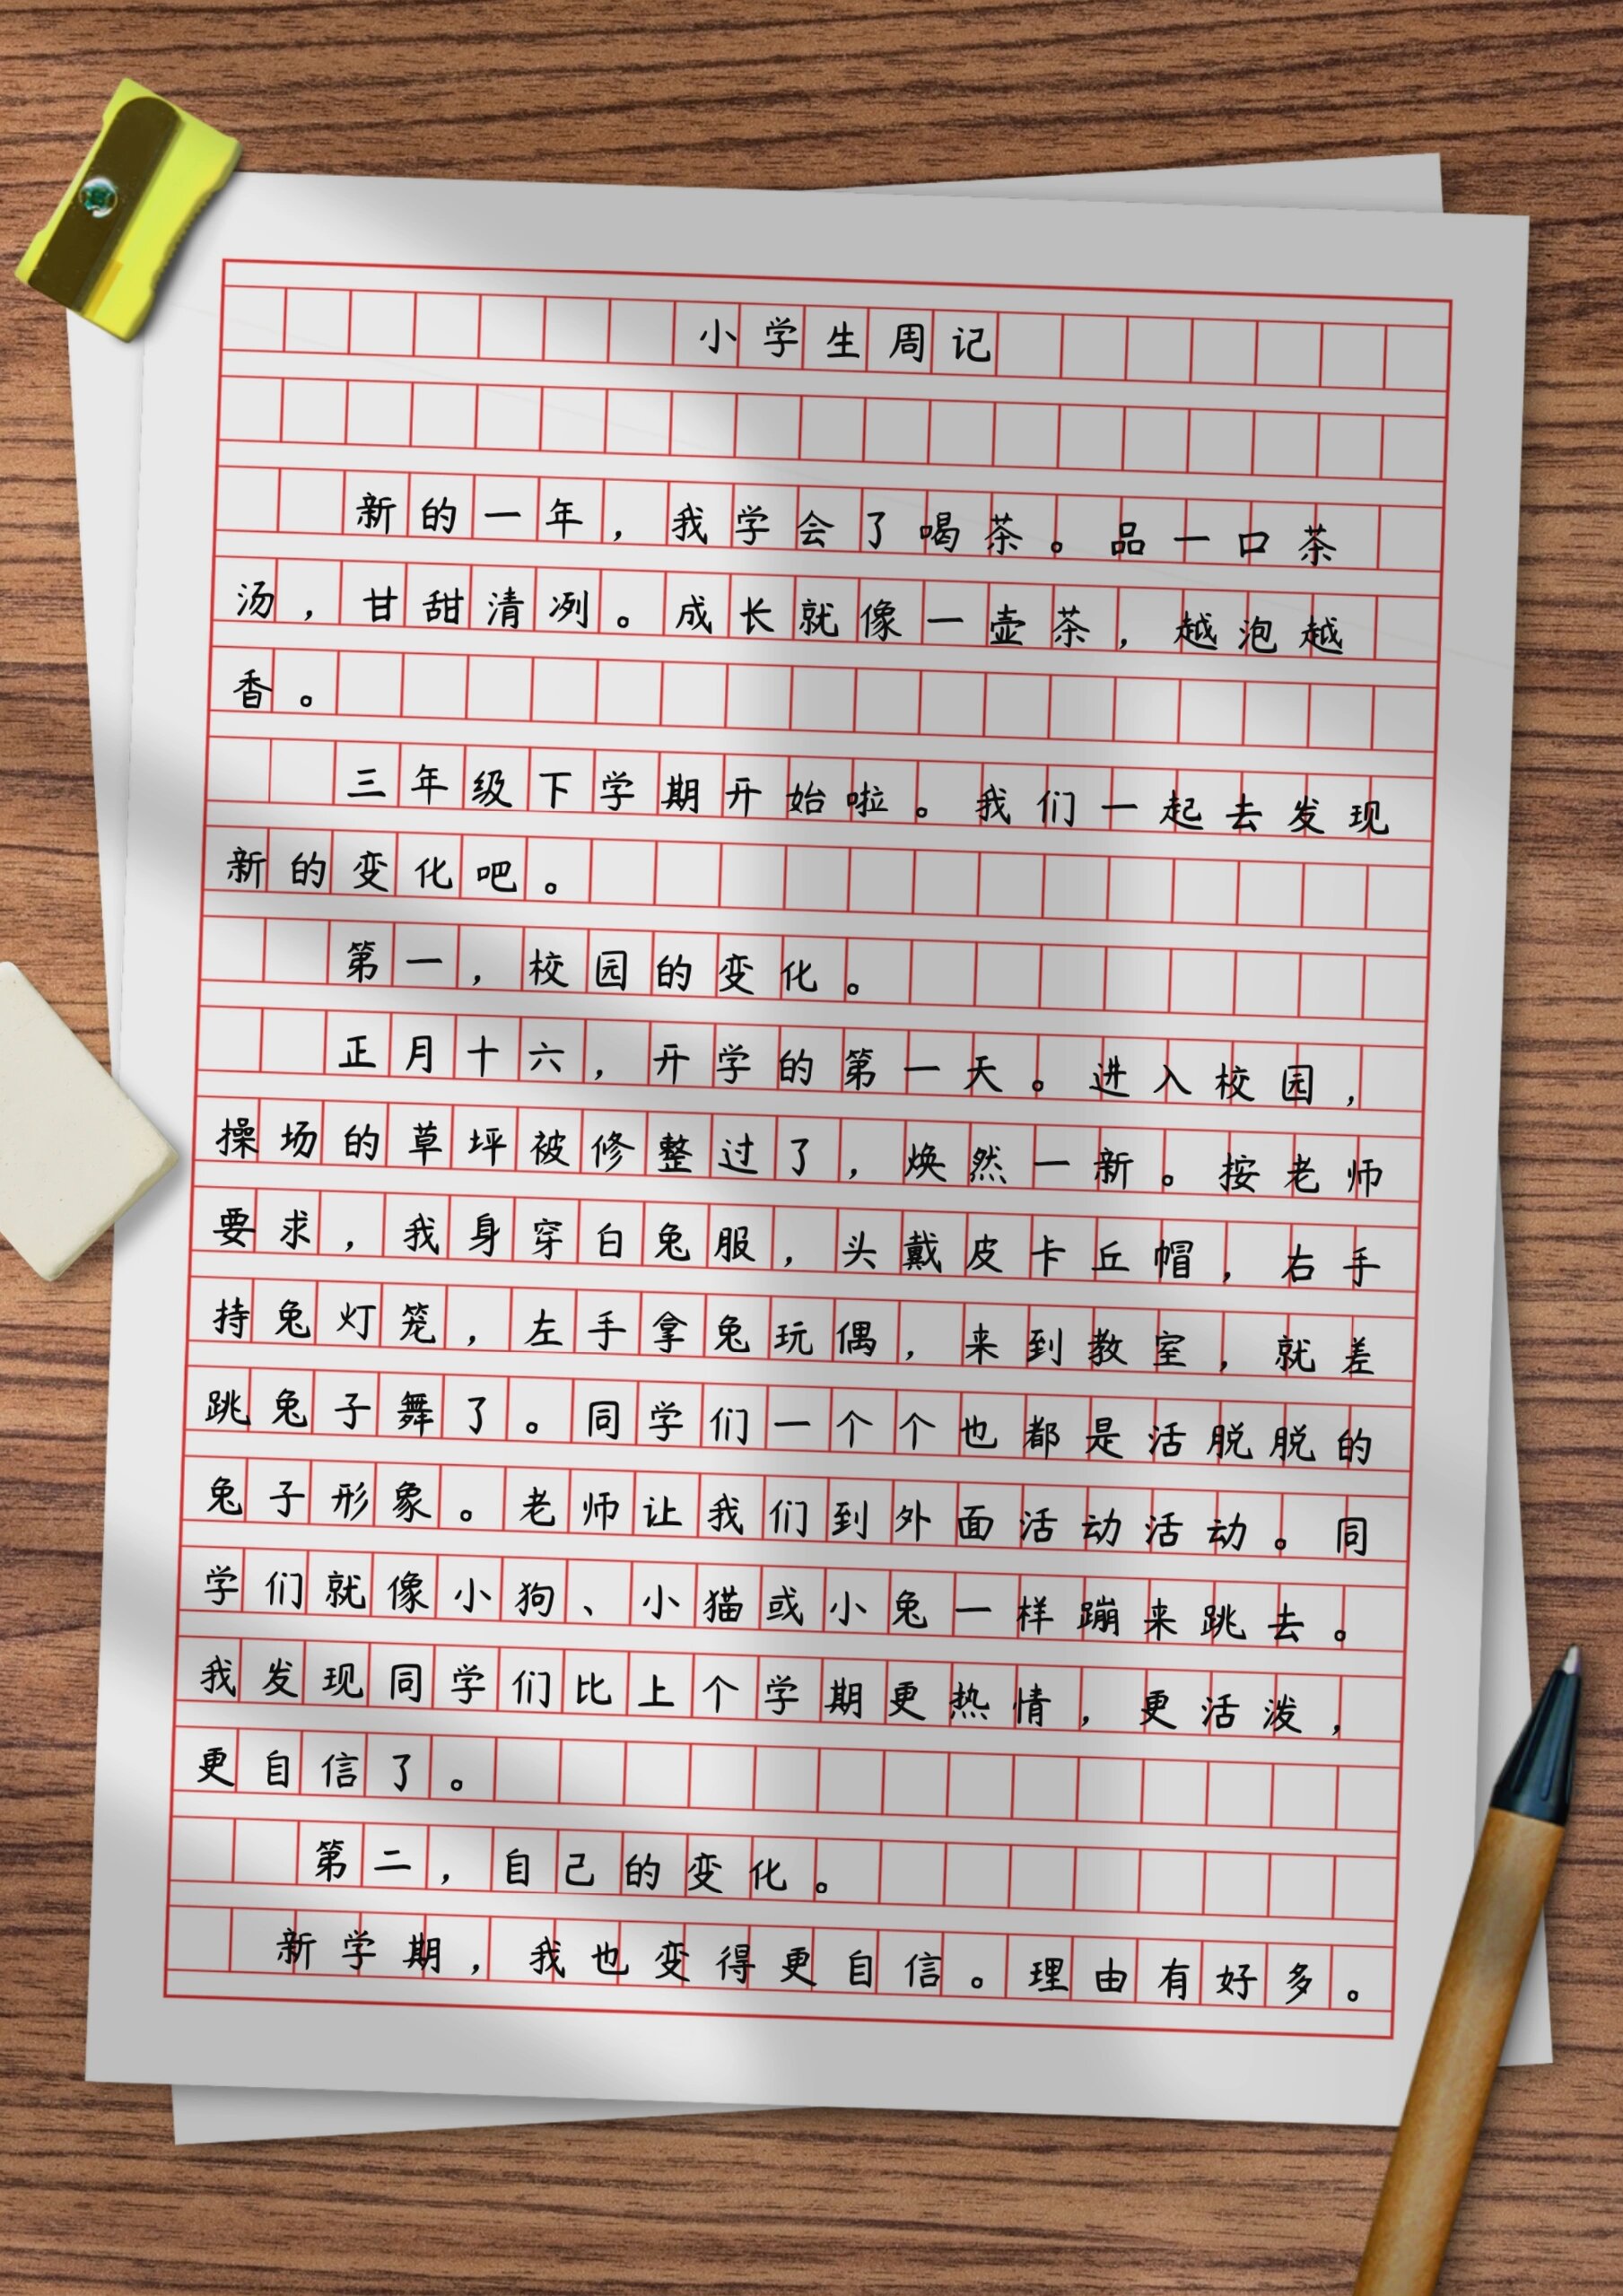 小学生周记
新的一年，我学会了喝茶。品一口茶
汤，甘甜清冽。成长就像一壶茶，越泡越
香。
三年级下学期开始啦。我们一起去发现
新的变化吧。
第一，校园的变化。
正月十六，开学的第一天。进入校园，
操场的草坪被修整过了，焕然一新。按老师
要求，我身穿白兔服，头戴皮卡丘帽，右手
持兔灯笼，左手拿兔玩偶，来到教室，就差
跳兔子舞了。同学们一个个也都是活脱脱的
兔子形象。老师让我们到外面活动活动。同
学们就像小狗、小猫或小兔一样蹦来跳去。
我发现同学们比上个学期更热情，更活泼，
更自信了。
第二，自己的变化。
新学期，我也变得更自信。理由有好多。